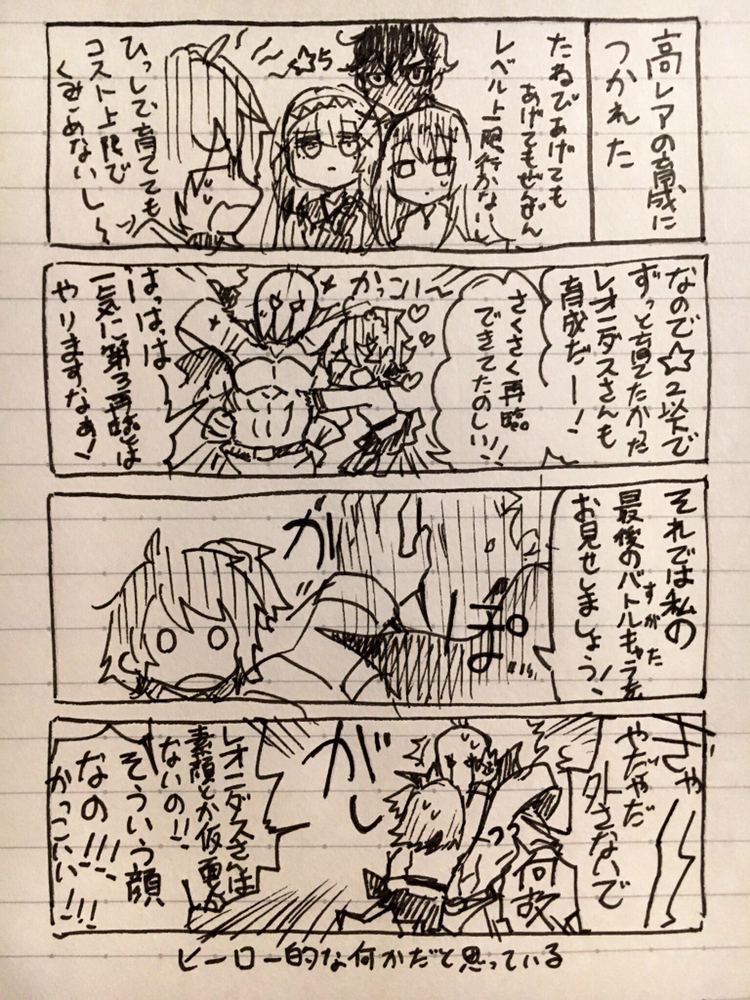 高レアの育成に
つかれた
たねびあげても
あげてもぜんぜん
レベル上限行かないし
☆5
ひっしで育てても
コスト上限で
くみこめないし〜
なので☆2以下で
ずっと育てたかった
レオニダスさんも
育成だー！
さくさく再臨
できてたのしい!!
かっこいー
はっはっはー
一気に第3再臨とは
やりますなぁ！
それでは私の
最後のバトルキャラを
すがた
お見せしましょう！
がし
ぎゃー
やだやだ
外さないで
何故
がし
レオニダスさんは
素顔とか仮面が
ないの!!
そういう顔
なの!!!
かっこいい!!!
ヒーロー的な何かだと思っている